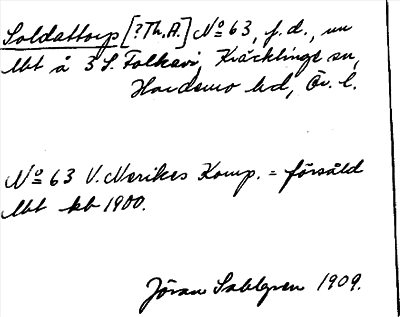 Soldattorp [?Th.A.] No 63, f.d., nu
lht å 3 S. Folkavi, Kräcklinge sn,
Hardemo hd, Ör. l.
No 63 V. Nerikes Komp. = försåld
lht kb 1900.
Jöran Sahlgren 1909.